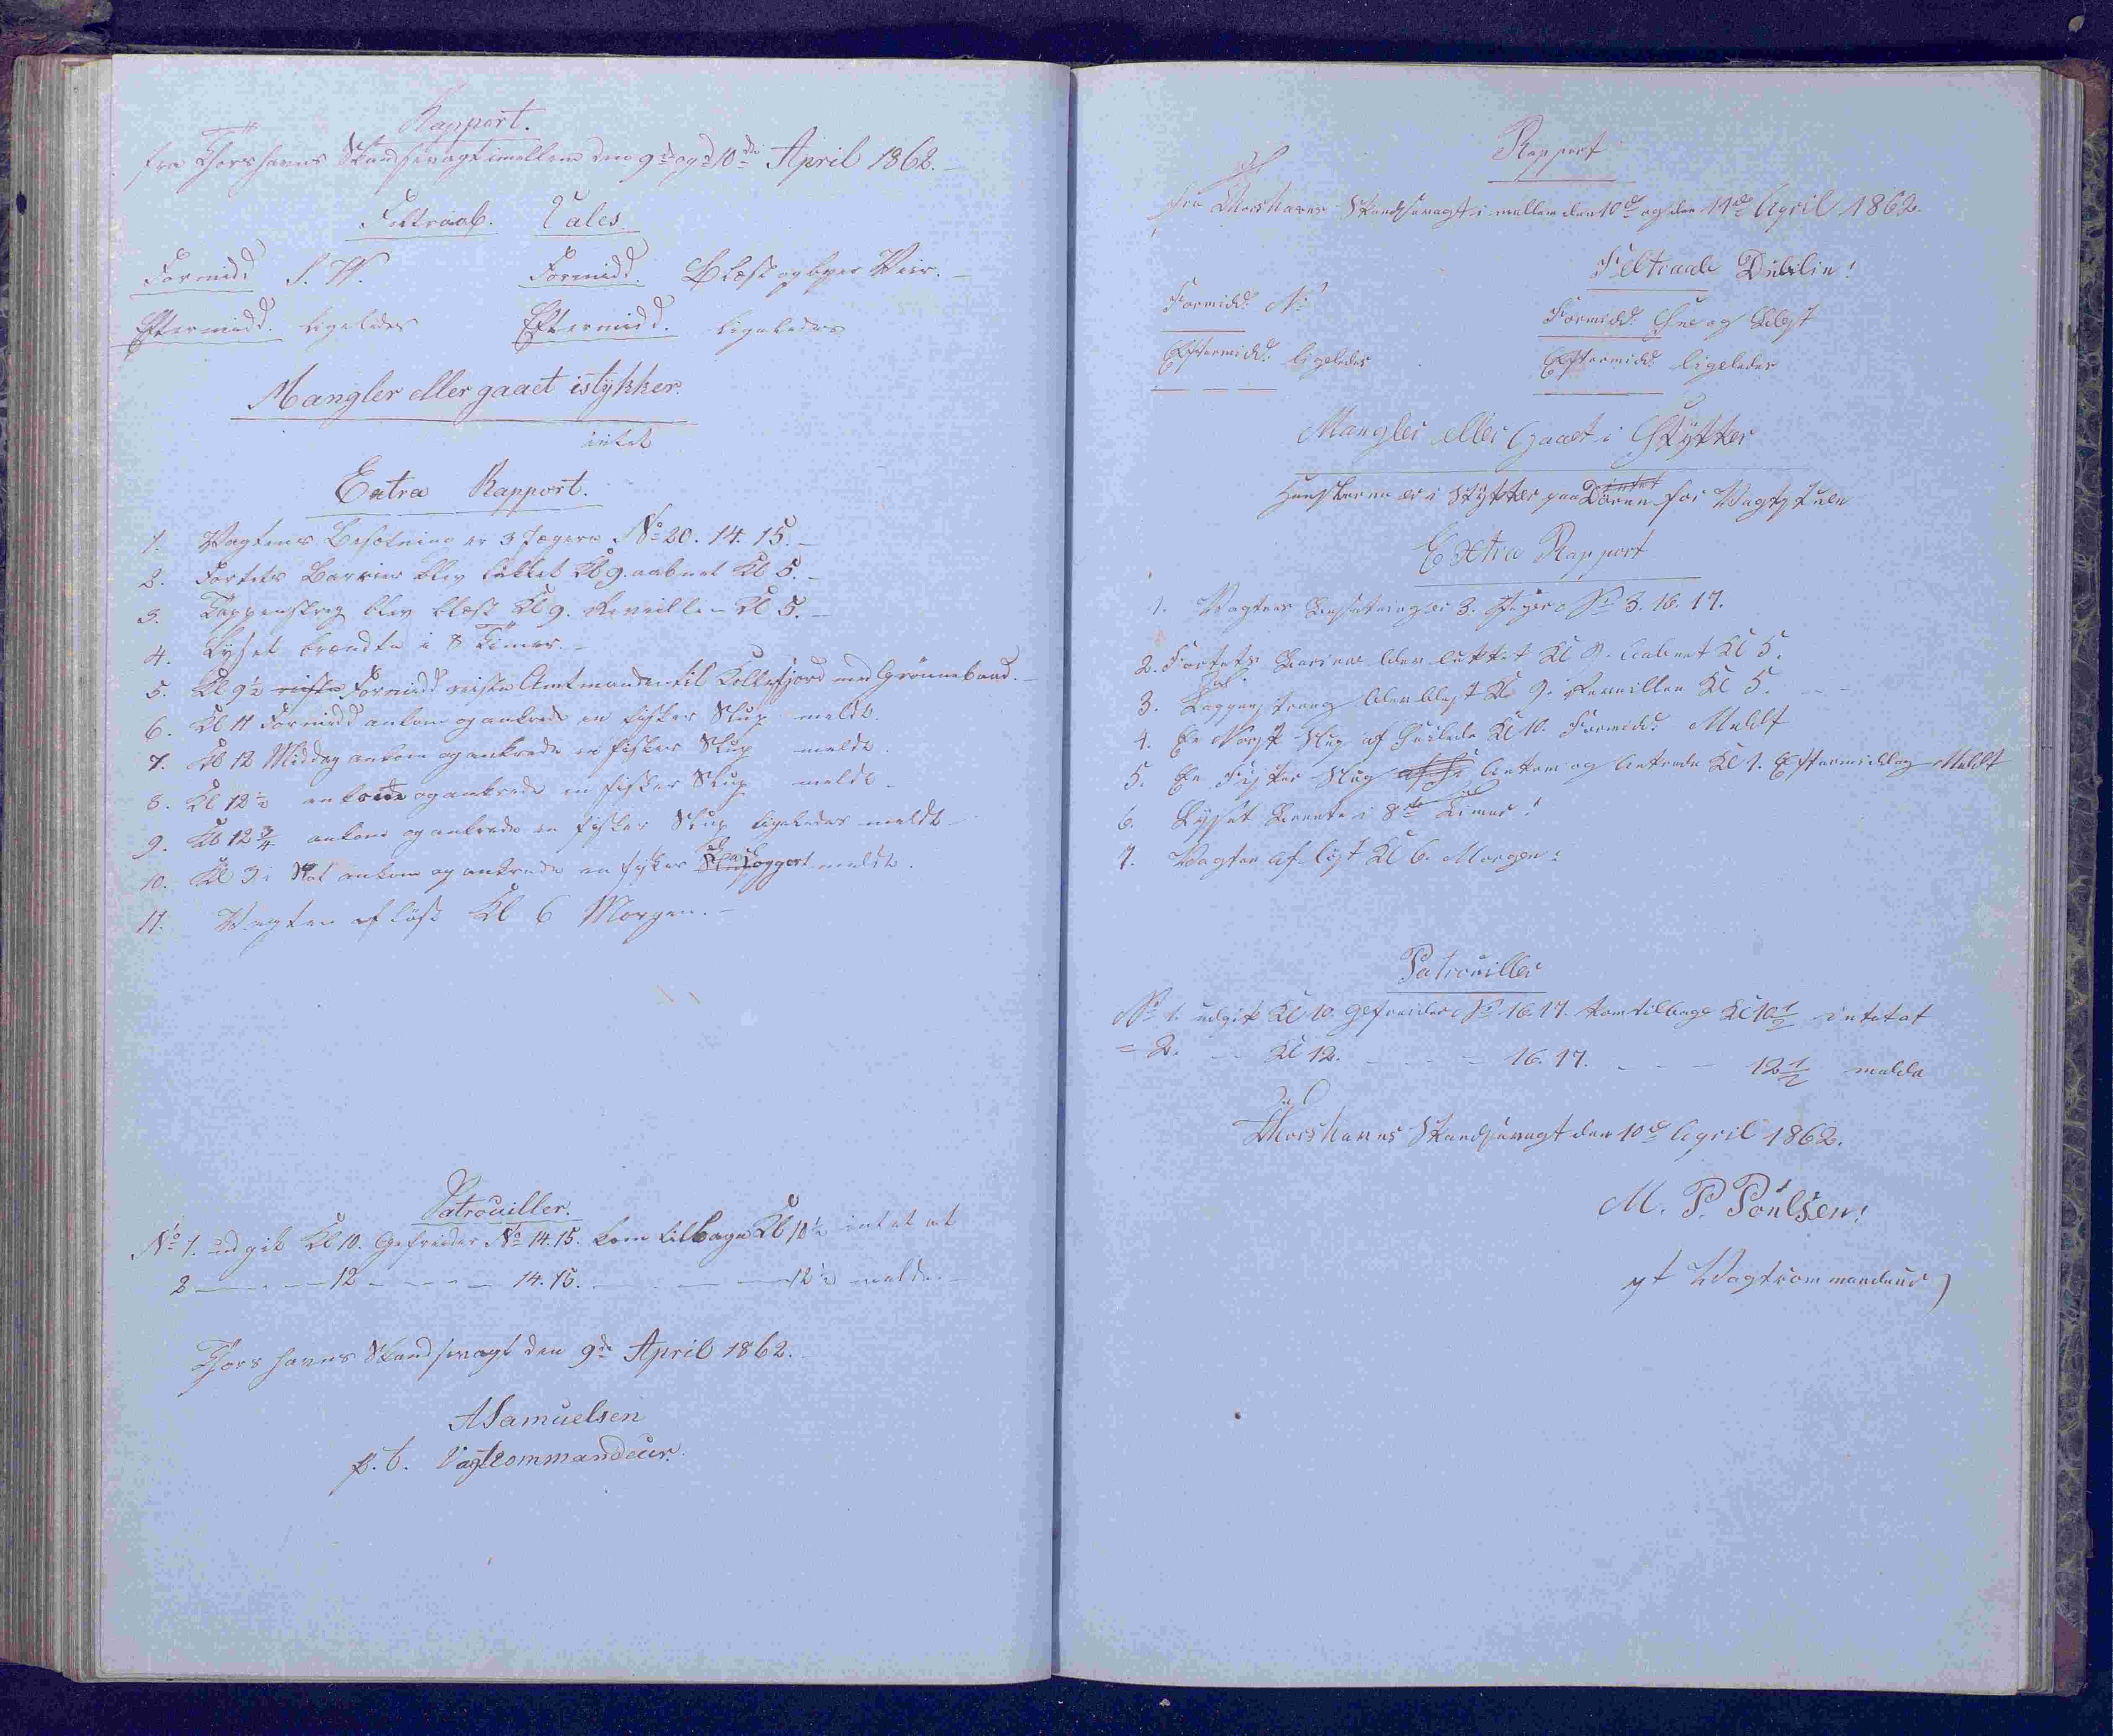 Rapport.
fra Thorshavns Skandsevagt imellem den 9de og d 10de April 1862.
Feltraab. Vales.
Formidd S. W. Formidd. Blæst og byge Veir.
Eftermidd. ligeledes Eftermidd. ligeledes
Mangler eller gaaet istykker.
intet
Extra Rapport.
1. Vagtens Besætning er 3 Jægere No 20. 14. 15.
2. Fortets Barrier blev lukket Kl 9. aabnet Kl 5.
3. Tappenstreg blev blæst Kl 9. Reveille – Kl 5.
4. Lyset brændte i 8 Timer.
5. Kl 9½ reiste Formidd reiste Amtmanden til Kollefjord med Grönnebaad.
6. Kl 11 Formidd ankom og ankrede en fisker Slup meldt.
7. Kl 12 Middag ankom og ankrede en fisker Slup meldt.
8. Kl 12½ ankom og ankrede en fisker Slup meldt.
9. Kl 12¾ ankom og ankrede en fisker Slup ligeledes meldt
10. Kl 3 i Nat ankom og ankrede en fisker Slup Loggert meldt.
11. Vagten aflöst Kl 6 Morgen.
Patrouiller.
No 1. udgik Kl 10. Gefreider No 14. 15. kom tilbage Kl 10½ intet at
2 — 12 — 14. 15. — 12½ melde.
Thorshavns Skandsevagt den 9de April 1862.
A Samuelsen
p. t. Vagtcommandeur.
Rapport
fra Thorshavns Skandsevagt i mellem den 10de og den 11te April 1862.
Feltraab Dublin!
Formidd. N. Formidd. Sne og Blæst
Eftermidd. ligeledes Eftermidd ligeledes
Mangler eller Gaaet i Stykker
intet
er i Stykker paa Dören for Vagtstuen
Extra Rapport
1. Vagtens Besætning er 3. Jæger No 3. 16. 17.
2. Fortets Bariere blev lukket Kl 9. Aabnet Kl 5.
3. Tappenstreeg blev blæst Kl 9. Reveillen Kl 5.
4. En Norsk Slup af Seilede Kl 10. Formidd. Meldt
5. En Fisker Slup af Se Ankom og Ankrede Kl 1. Eftermiddag Meldt
6. Lyset Brente i 8te Timer!
7. Vagten aflöst Kl 6. Morgen.
Patrouiller
No 1. udgik Kl 10. Gefreider No 16. 17. kom tilbage Kl 10½ intet at
= 2. — Kl 12. — 16. 17. — 12½ melde
Thorshavns Skandsevagt den 10de April 1862.
M. P. Poulsen!
pt Vagtcommandeur